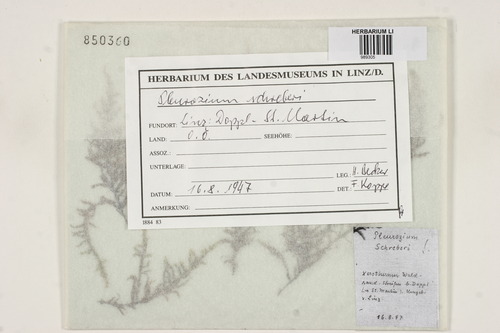 850360
HERBARIUM LI
989305
HERBARIUM DES LANDESMUSEUMS IN LINZ/D.
Pleurozium schreberi
FUNDORT: Linz: Doppl - St. Martin
LAND: O.Ö. SEEHÖHE:
ASSOZ.:
UNTERLAGE:
LEG. H. Becker
DATUM: 16.8.1947 DET. F. Koppe
ANMERKUNG:
I884 83
Pleurozium
Schreberi !
Wald-
b. Doppl
St. Martin
Linz
16.8.47